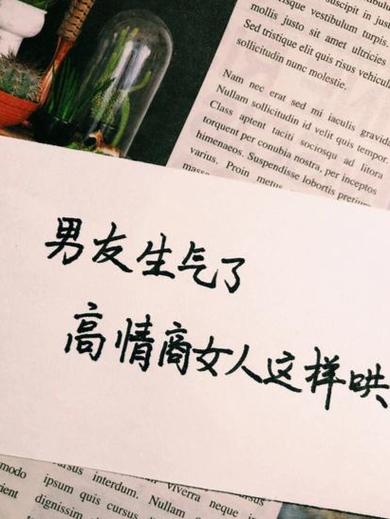 suscipit in jus
risque vestibulum turpis.
mollis justo sit amet ultricies
Sed tristique elit quis risus vehicula
sollicitudin nunc molestie.
Nam nec erat sed mi iaculis gravida
Nullam sollicitudin id velit quis tempor.
Class aptent taciti sociosqu ad litora
torquent per conubia nostra, per inceptos
himenaeos. Suspendisse lobortis pretium
varius. Proin metus
massa
男友生气了
高情商女人这样哄
modo
ursus interdum. Nullam viverra neque i
ient
ipsum quis cursus
dignissim